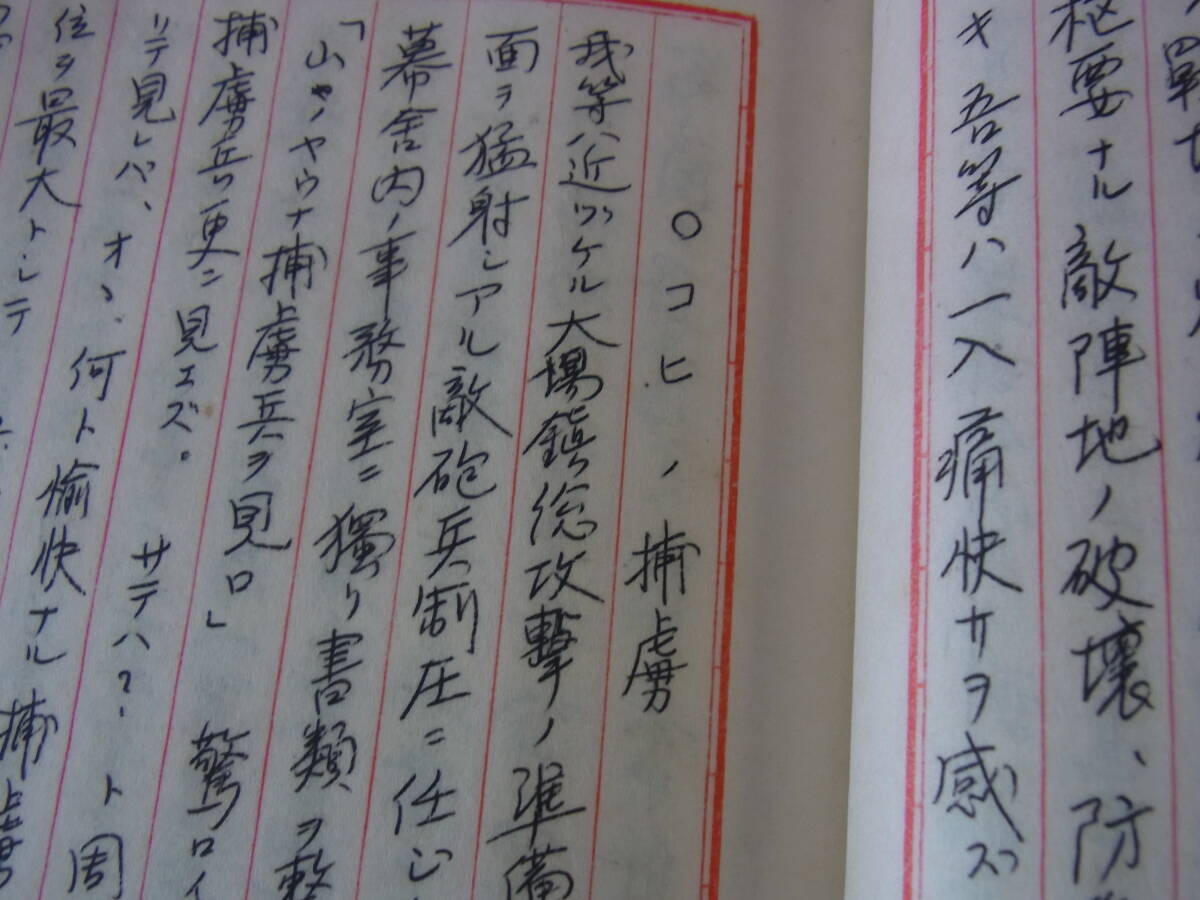 枢要ナル敵陣地ノ破壊、防
キ吾等ハ一入痛快サヲ感ズ
○コヒノ捕虜
我等ハ近ヅケル大場鎮総攻撃ノ準備
面ヲ猛射シアル敵砲兵制圧ニ任じ
幕舎内ノ事務室ニ獨り書類ヲ整
「山ノヤウナ捕虜兵ヲ見ロ」驚ロイ
捕虜兵ハ更ニ見エズ。サテハ?ト周
リテ見レバ、オヽ、何ト愉快ナル捕虜
位ヲ最大トシテ